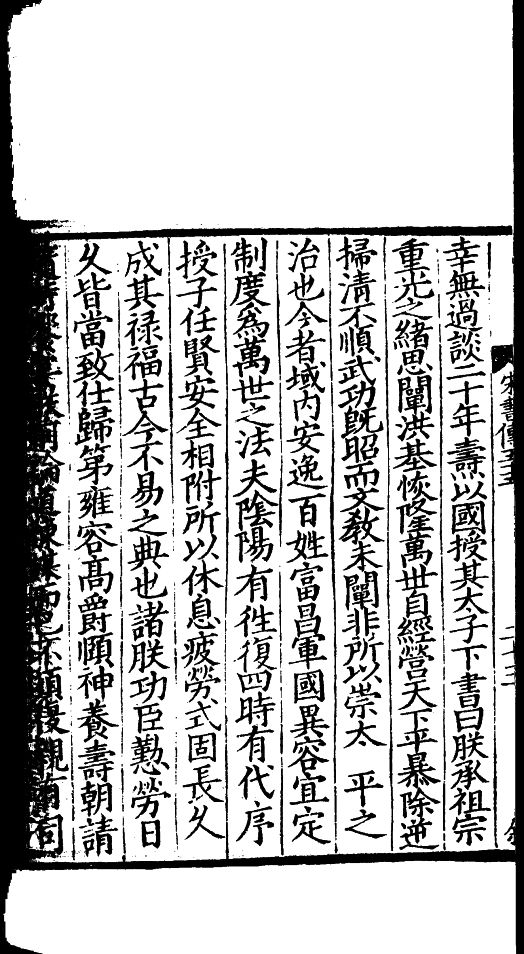 宋書傳五五
二十三
幸無過談二十年壽以國授其太子下書曰朕承祖宗
重光之緒思闡洪基恢隆萬世自經營天下平暴除逆
掃清不順武功既昭而文教未闡非所以崇太 平之
治也今者域内安逸百姓富昌軍國異容宜定
制度爲萬世之法夫陰陽有徃復四時有代序
授子任賢安全相附所以休息疲勞式固長久
成其禄福古今不易之典也諸朕功臣懃勞日
久皆當致仕歸第雍容高爵頤神養壽朝請